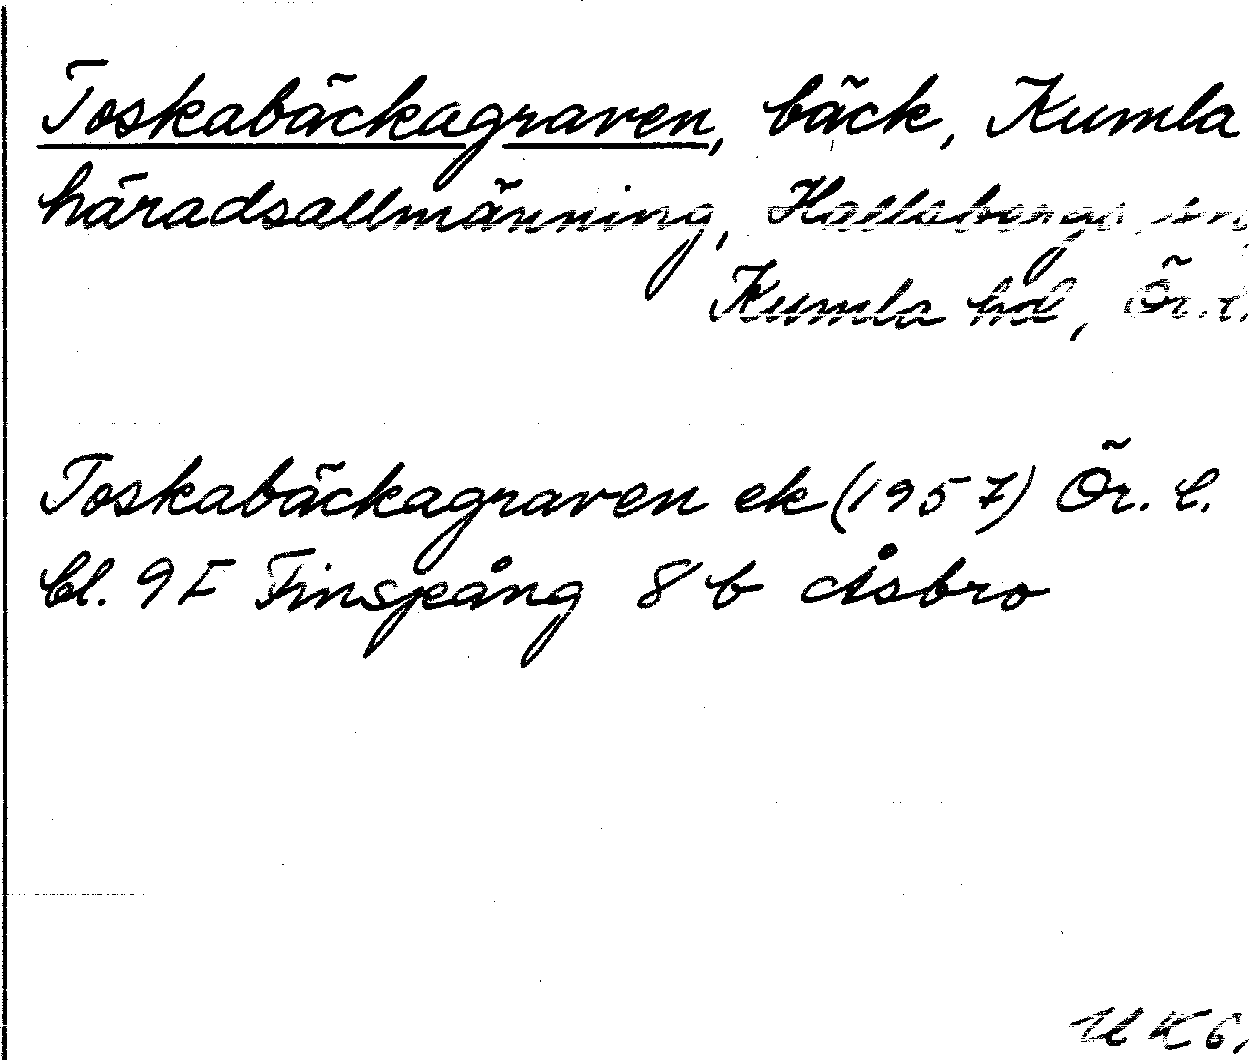 Toskabäckagraven, bäck, Kumla
häradsallmänning, Hallsbergs sn,
Kumla hd, Ör. l.
Toskabäckagraven ek (1957) Ör. l.
bl. 9F Finspång 8b Åsbro